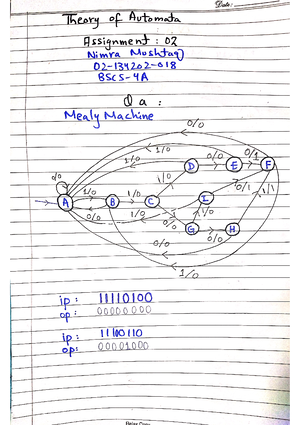 Date:
Theory of Automata
Assignment : 02
Nimra Mushtaq
02-134202-018
BSCS-4A
Q a :
Mealy Machine
0/0
1/0
1/0
0/0
0/1
D
E
F
0/0
1/0
1/0
1/0
A
B
C
I
0/1
1/1
0/0
1/0
0/0
1/0
G
H
0/0
0/0
1/0
ip: 11110100
op: 00000000
ip: 11100110
op: 00001000